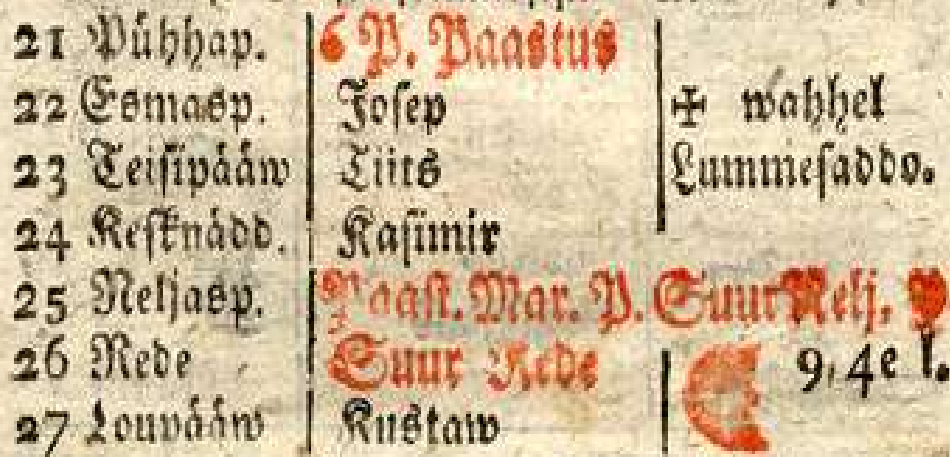 21 Pühhap. 6 P. Paastus
22 Esmasp. Josep ✠ wahhel
23 Teisipääw Tiits Lummesaddo.
24 Kesknädd. Kasimir
25 Neljasp. Paast. Mar. P. Suur Nelj. P
26 Rede Suur Rede 9, 4e l.
27 Loupääw Kustaw